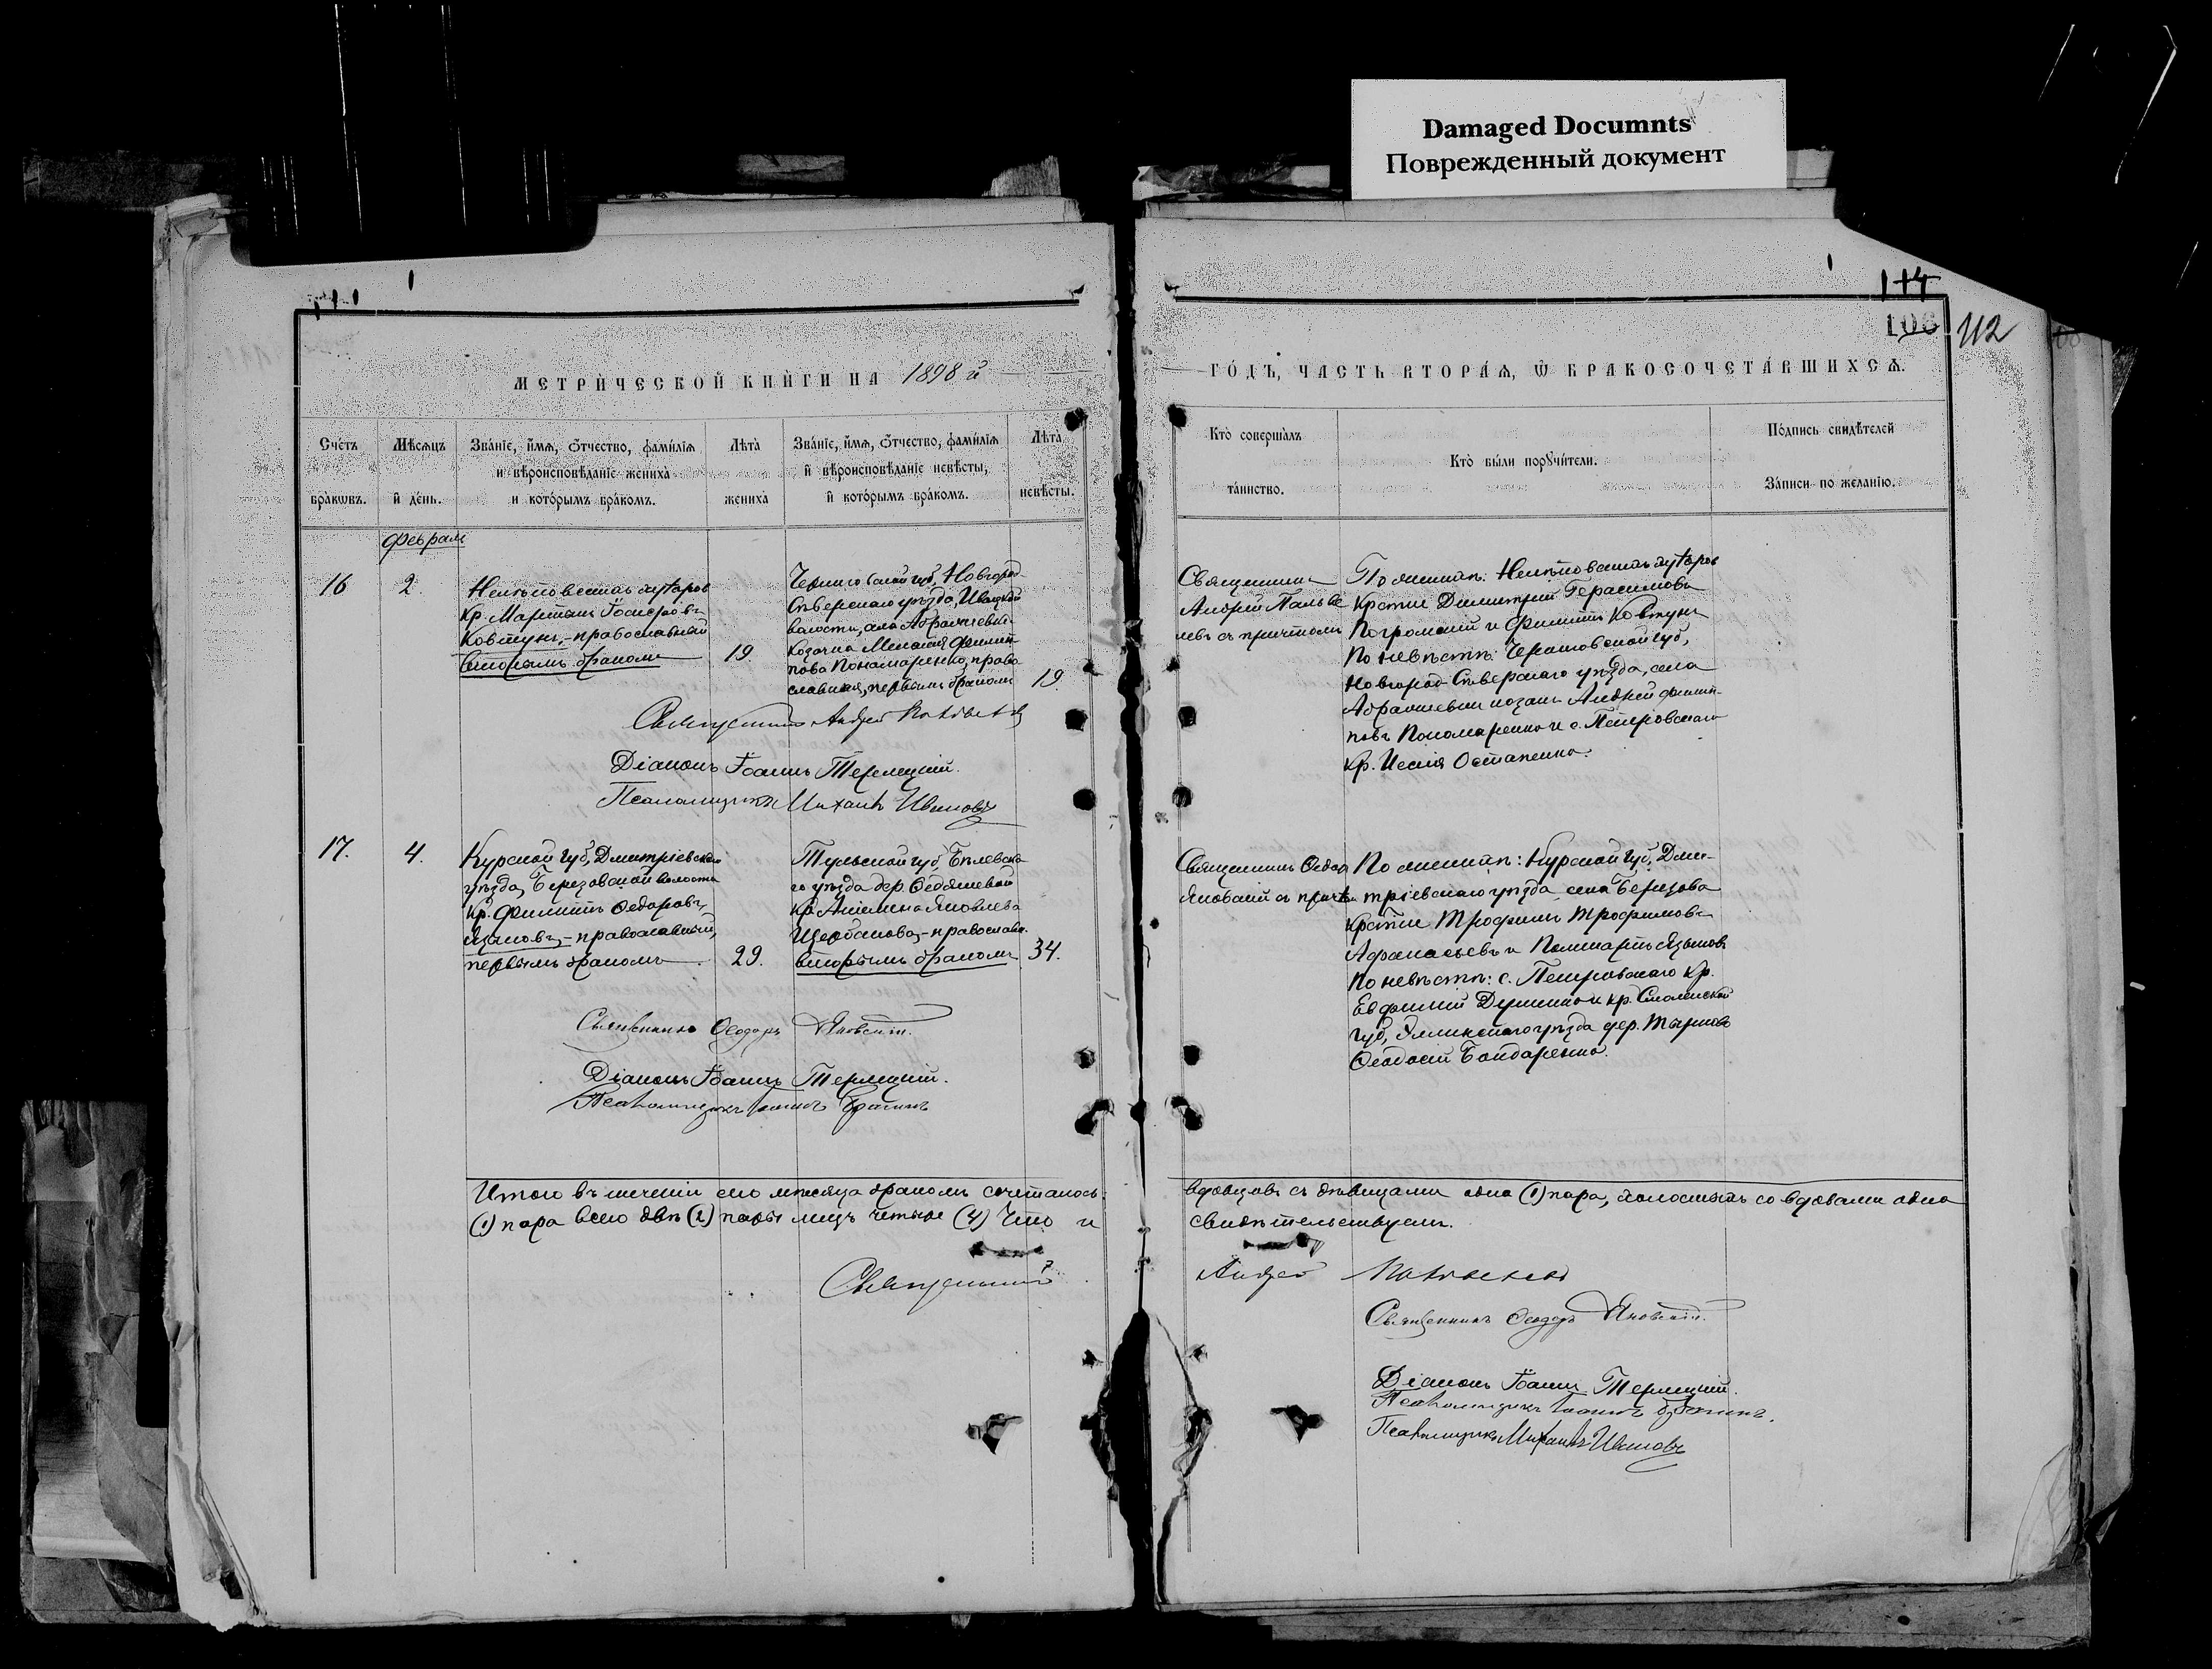 Damaged Documnts
Поврежденный документ
114
106
112
МЕТРИЧЕСКОЙ КНИГИ НА 1898 й
ГОДЪ, ЧАСТЬ ВТОРАЯ, Ѽ БРАКОСОЧЕТАВШИХСЯ.
Счетъ браковъ.
Мѣсяцъ и день.
Званіе, имя, ѿчество, фамилія
и вѣроисповѣданіе жениха
и которымъ бракомъ.
Лѣта
жениха
Званіе, имя, ѿчество, фамилія
и вѣроисповѣданіе невѣсты,
и которымъ бракомъ.
Лѣта
невѣсты.
Кто совершалъ
таинство.
Кто были поручители.
Подпись свидѣтелей
записи по желанію.
Феврал
16
2.
хуторов
Кр. Мартинъ
Ковтунъ, - православный
вторымъ бракомъ
19.
Черниговской губ, Новгород-
Сѣверскаго уѣзда,
волости, села
козачка Филип-
пова Понамаренко, право-
славная, первымъ бракомъ
19.
Священникъ
Андрей
левъ съ причтомъ
По женихѣ: хуторов
Крстне Димитрій Герасимовъ
Погромскій и Филиппъ Ковтунъ
По невѣстѣ: Черниговской губ,
Новгород-Сѣверскаго уѣзда, села
козакъ Андрей Филип-
повъ Пономаренко и с. Петровскаго
Кр. Исаія Остапенко.
Священникъ Андрей
Діаконъ Іоаннъ Терлецкій.
Псаломщикъ Михаилъ Ивановъ
17.
4.
Курской губ, Дмитріевскаго
уѣзда, Березовской волости
Кр. Филиппъ Ѳедоровъ
Язиковъ, - православный,
первымъ бракомъ
29.
Тульской губ Бѣлевска-
го уѣзда дер. Ѳедяшевой
Кр. Яковлева
Щербакова, - православн.
вторымъ бракомъ
34.
Священникъ Ѳеодоръ
Яновскій съ причтом
По женихѣ: Курской губ, Дми-
тріевскаго уѣзда села Березова
Крстне Трофимъ Трофимовъ
Афанасьевъ и Поликарпъ Язиковъ
По невѣстѣ: с. Петровскаго Кр.
Евфимій и кр. Смоленской
губ, уѣзда дер.
Ѳеодосій Бондаренко.
Священникъ Ѳеодоръ Яновскій.
Діаконъ Іоаннъ Терлецкій.
Псаломщикъ Іоаннъ
Итого въ теченіи сего мѣсяца бракомъ сочеталось:
вдовцовъ съ дѣвицами одна (1) пара, холостыхъ со вдовами одна
(1) пара всего двѣ (2) пары лицъ четыре (4) Что и
свидѣтельствуемъ.
Священникъ
Андрей
Священникъ Ѳеодоръ Яновскій.
Діаконъ Іоаннъ Терлецкій.
Псаломщикъ Іоаннъ
Псаломщикъ Михаилъ Ивановъ